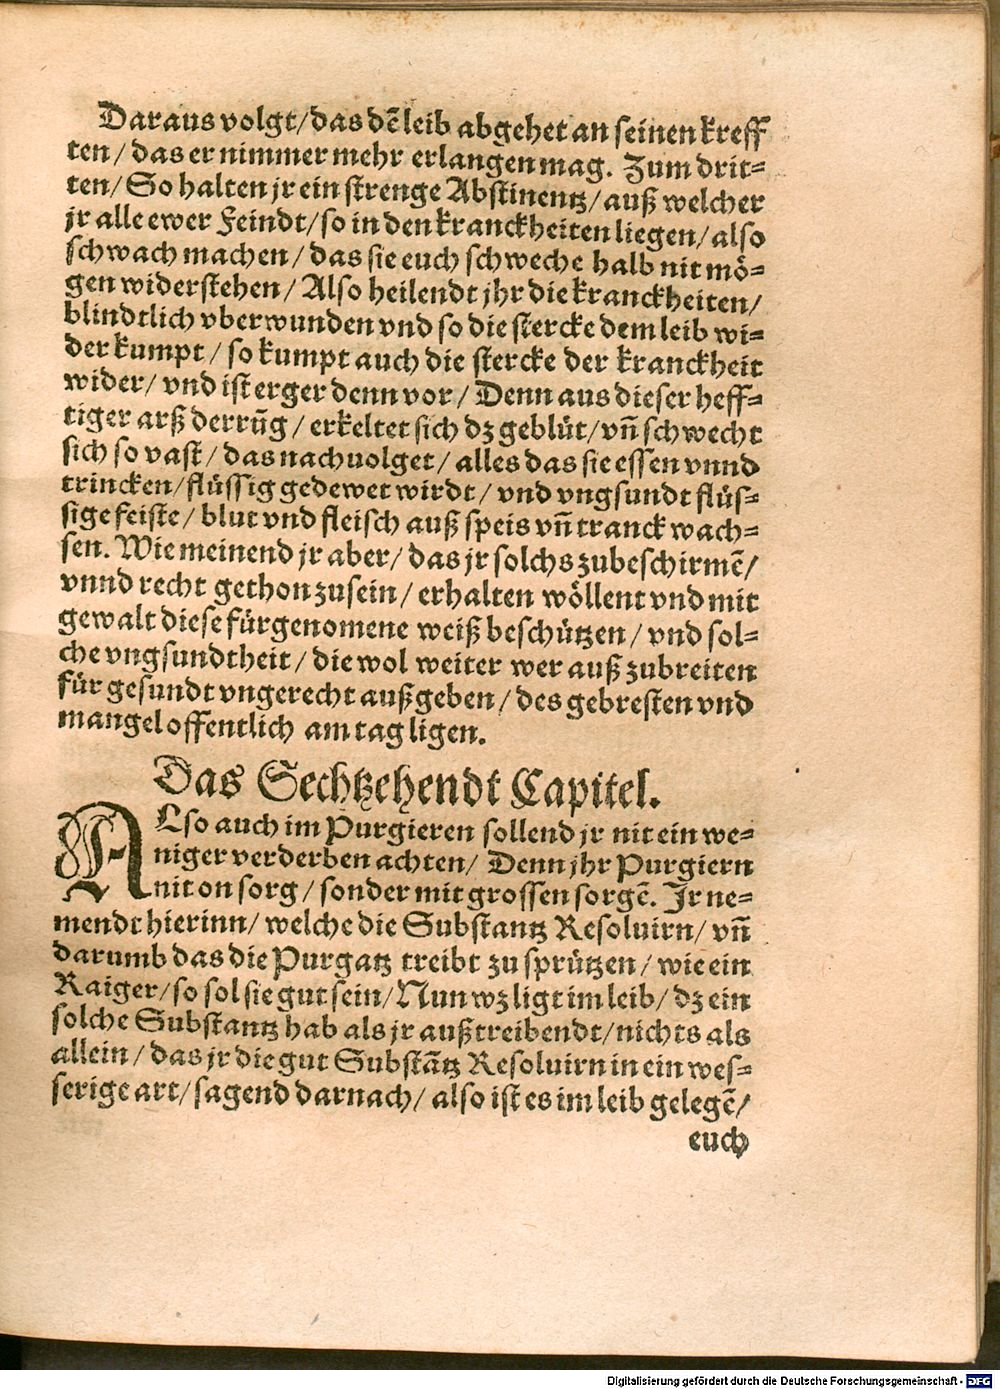 Daraus volgt/das dē leib abgehet an seinen kreff
ten/ das er nimmer mehr erlangen mag. Zum drit=
ten/ So halten jr ein strenge Abstinentz/auß welcher
jr alle ewer Feindt/so in den kranckheiten liegen/also
schwach machen/ das sie euch schweche halb nit mö=
gen widerstehen/ Also heilendt jhr die kranckheiten/
blindtlich vberwunden vnd so die stercke dem leib wi=
der kumpt/ so kumpt auch die stercke der kranckheit
wider/ vnd ist erger denn vor/ Denn aus dieser heff=
tiger arß derrūg/ erkeltet sich dz geblüt/vñ schwecht
sich so vast/ das nachuolget/ alles das sie essen vnnd
trincken/flüssig gedewet wirdt/ vnd vngsundt flüs=
sige feiste/ blut vnd fleisch auß speis vñ tranck wach=
sen. Wie meinend jr aber/ das jr solchs zubeschirmē/
vnnd recht gethon zusein/ erhalten wöllent vnd mit
gewalt diese fürgenomene weiß beschützen/ vnd sol=
che vngsundtheit/ die wol weiter wer auß zubreiten
für gesundt vngerecht außgeben/ des gebresten vnd
mangel offentlich am tag ligen.
Das Sechtzehendt Capitel.
ALso auch im Purgieren sollend jr nit ein we=
niger verderben achten/ Denn jhr Purgiern
nit on sorg/ sonder mit grossen sorgē. Jr ne=
mendt hierinn/ welche die Substantz Resoluirn/ vñ
darumb das die Purgatz treibt zu sprützen/ wie ein
Raiger/so sol sie gut sein/Nun wz ligt im leib/ dz ein
solche Substantz hab als jr außtreibendt/nichts als
allein/ das jr die gut Substātz Resoluirn in ein wes=
serige art/ sagend darnach/ also ist es im leib gelegē/
euch
Digitalisierung gefördert durch die Deutsche Forschungsgemeinschaft - DFG